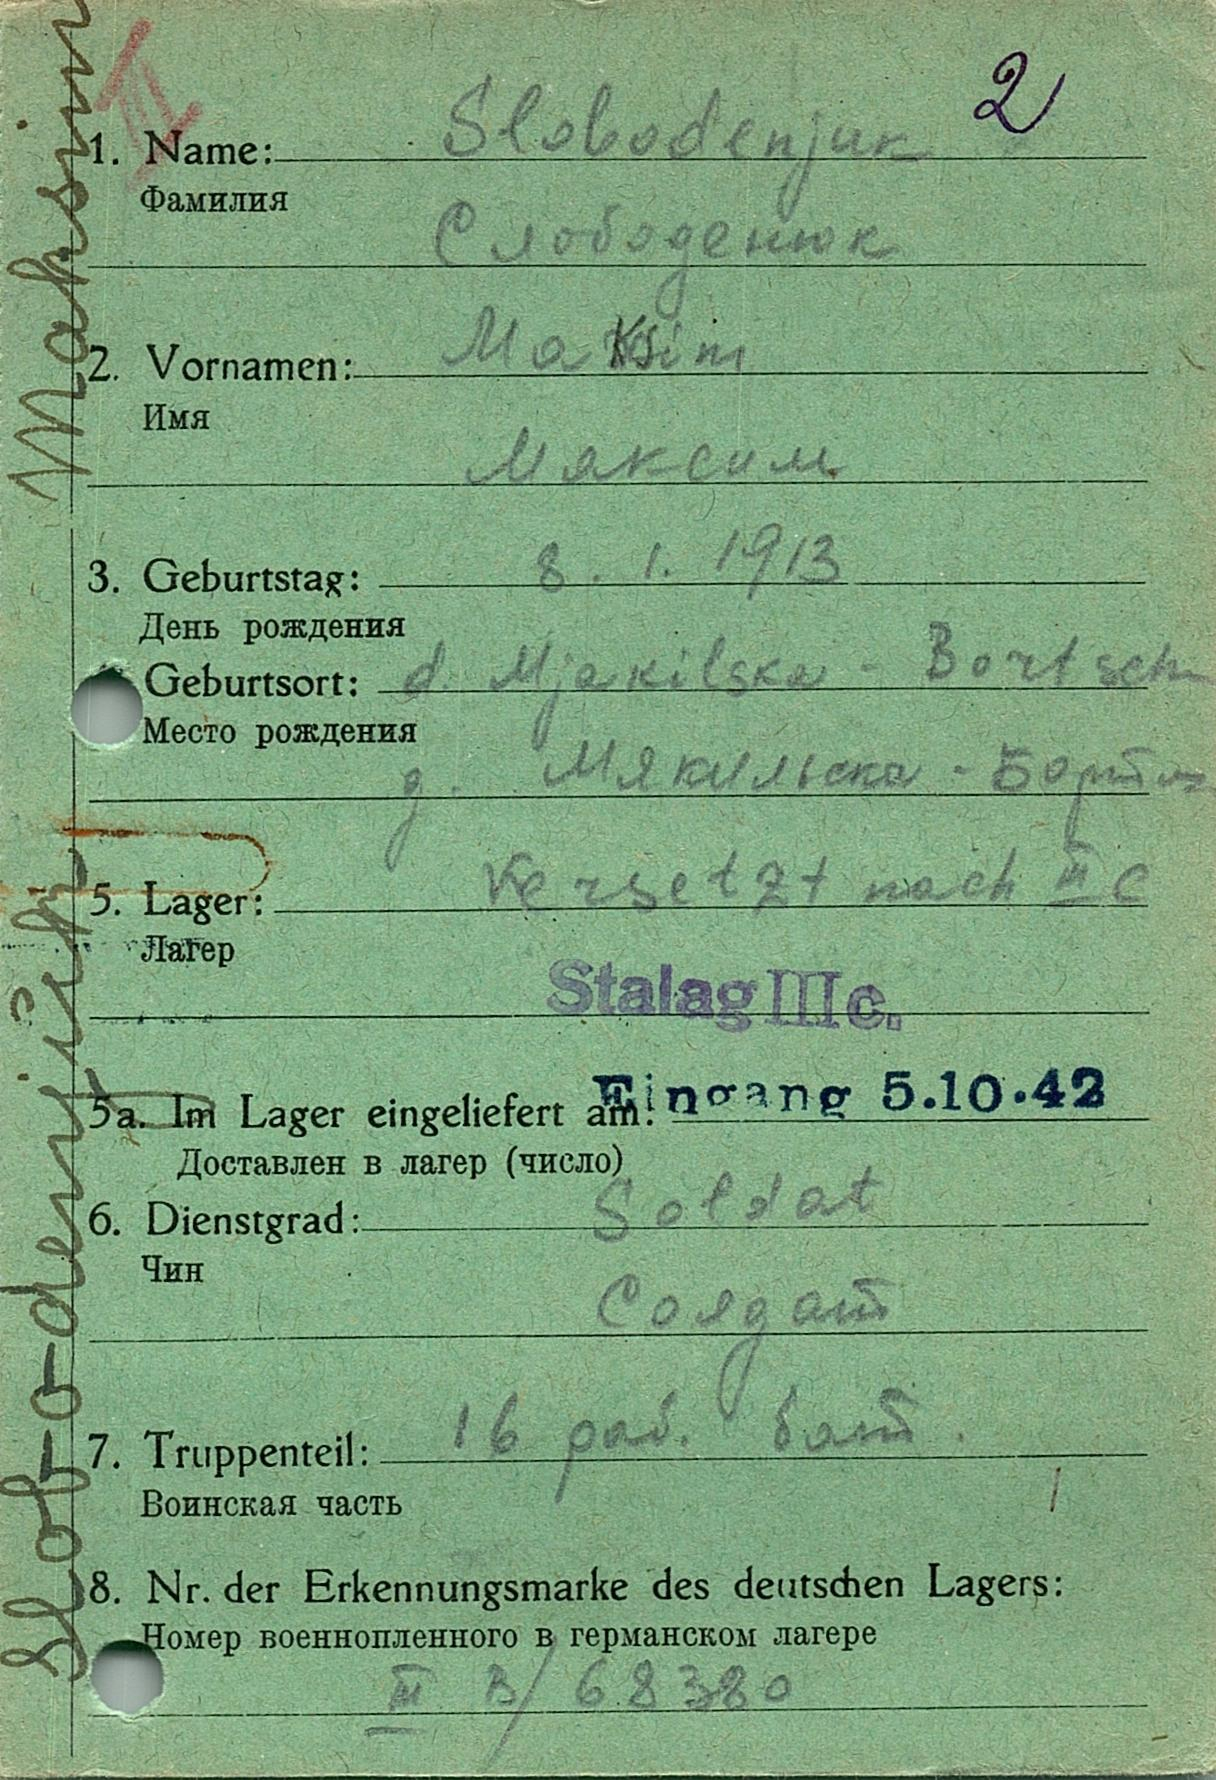 2
II
1. Name: Slobodenjuk
Фамилия
Слободенюк
2. Vornamen: Maksim
Имя
Максим
3. Geburtstag: 8. 1. 1913
День рождения
Geburtsort: d. Mjakilska - Bortsch
Место рождения
д. Мякильска -
5. Lager: Versetzt nach III C
Лагер
Stalag III c.
5a. Im Lager eingeliefert am: Eingang 5.10.42
Доставлен в лагер (число)
6. Dienstgrad: Soldat
Чин
Солдат
7. Truppenteil: 16 раб. бат.
Воинская часть
8. Nr. der Erkennungsmarke des deutschen Lagers:
Номер военнопленного в германском лагере
III B/ 68380
Slobodenjuk Maksim